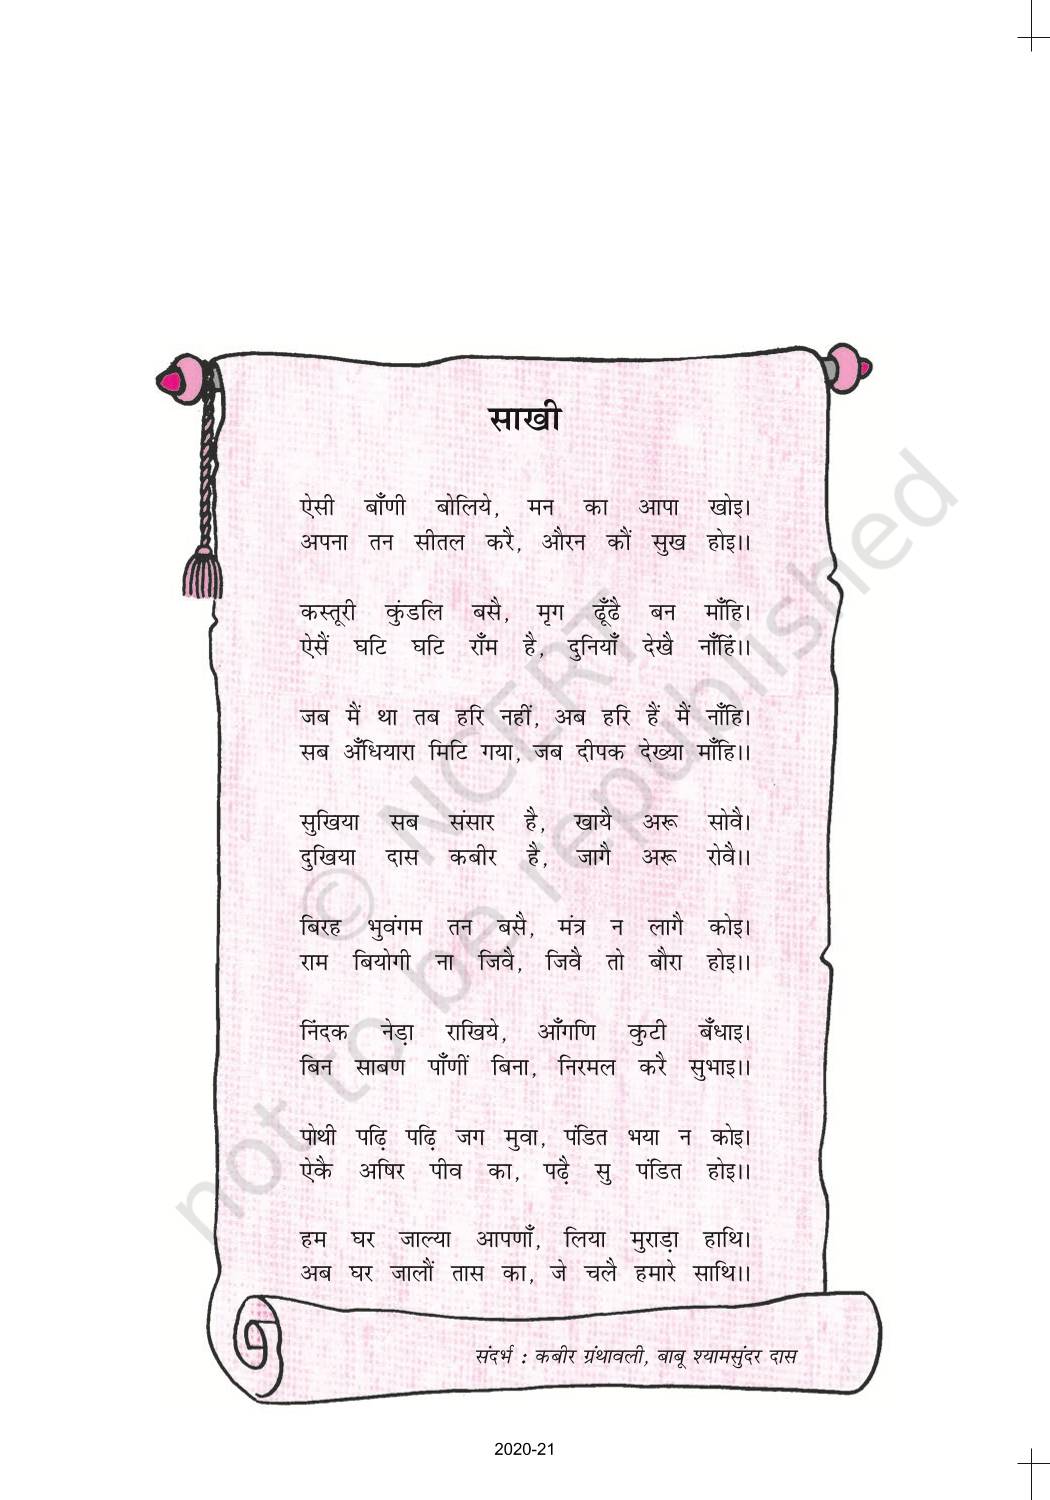 साखी
ऐसी बाँणी बोलिये, मन का आपा खोइ।
अपना तन सीतल करै, औरन कौं सुख होइ।।
कस्तूरी कुंडलि बसै, मृग ढूँढै बन माँहि।
ऐसैं घटि घटि राँम है, दुनियाँ देखै नाँहिं।।
जब मैं था तब हरि नहीं, अब हरि हैं मैं नाँहि।
सब अँधियारा मिटि गया, जब दीपक देख्या माँहि।।
सुखिया सब संसार है, खायै अरू सोवै।
दुखिया दास कबीर है, जागै अरू रोवै।।
बिरह भुवंगम तन बसै, मंत्र न लागै कोइ।
राम बियोगी ना जिवै, जिवै तो बौरा होइ।।
निंदक नेड़ा राखिये, आँगणि कुटी बँधाइ।
बिन साबण पाँणीं बिना, निरमल करै सुभाइ।।
पोथी पढ़ि पढ़ि जग मुवा, पंडित भया न कोइ।
ऐकै अषिर पीव का, पढ़ै सु पंडित होइ।।
हम घर जाल्या आपणाँ, लिया मुराड़ा हाथि।
अब घर जालौं तास का, जे चलै हमारे साथि।।
संदर्भ : कबीर ग्रंथावली, बाबू श्यामसुंदर दास
© NCERT
not to be republished
2020-21